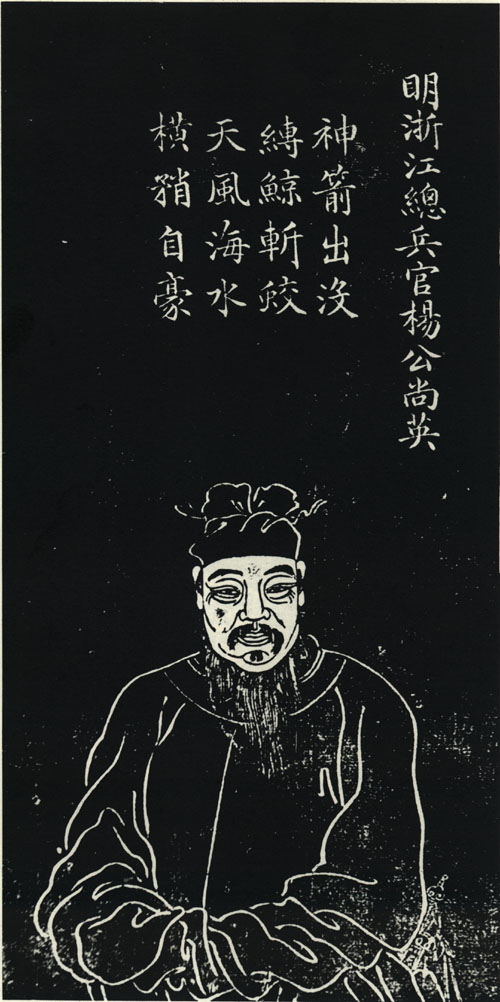 明浙江總兵官楊公尚英
神箭出沒
縛鯨斬蛟
天風海水
橫矟自豪